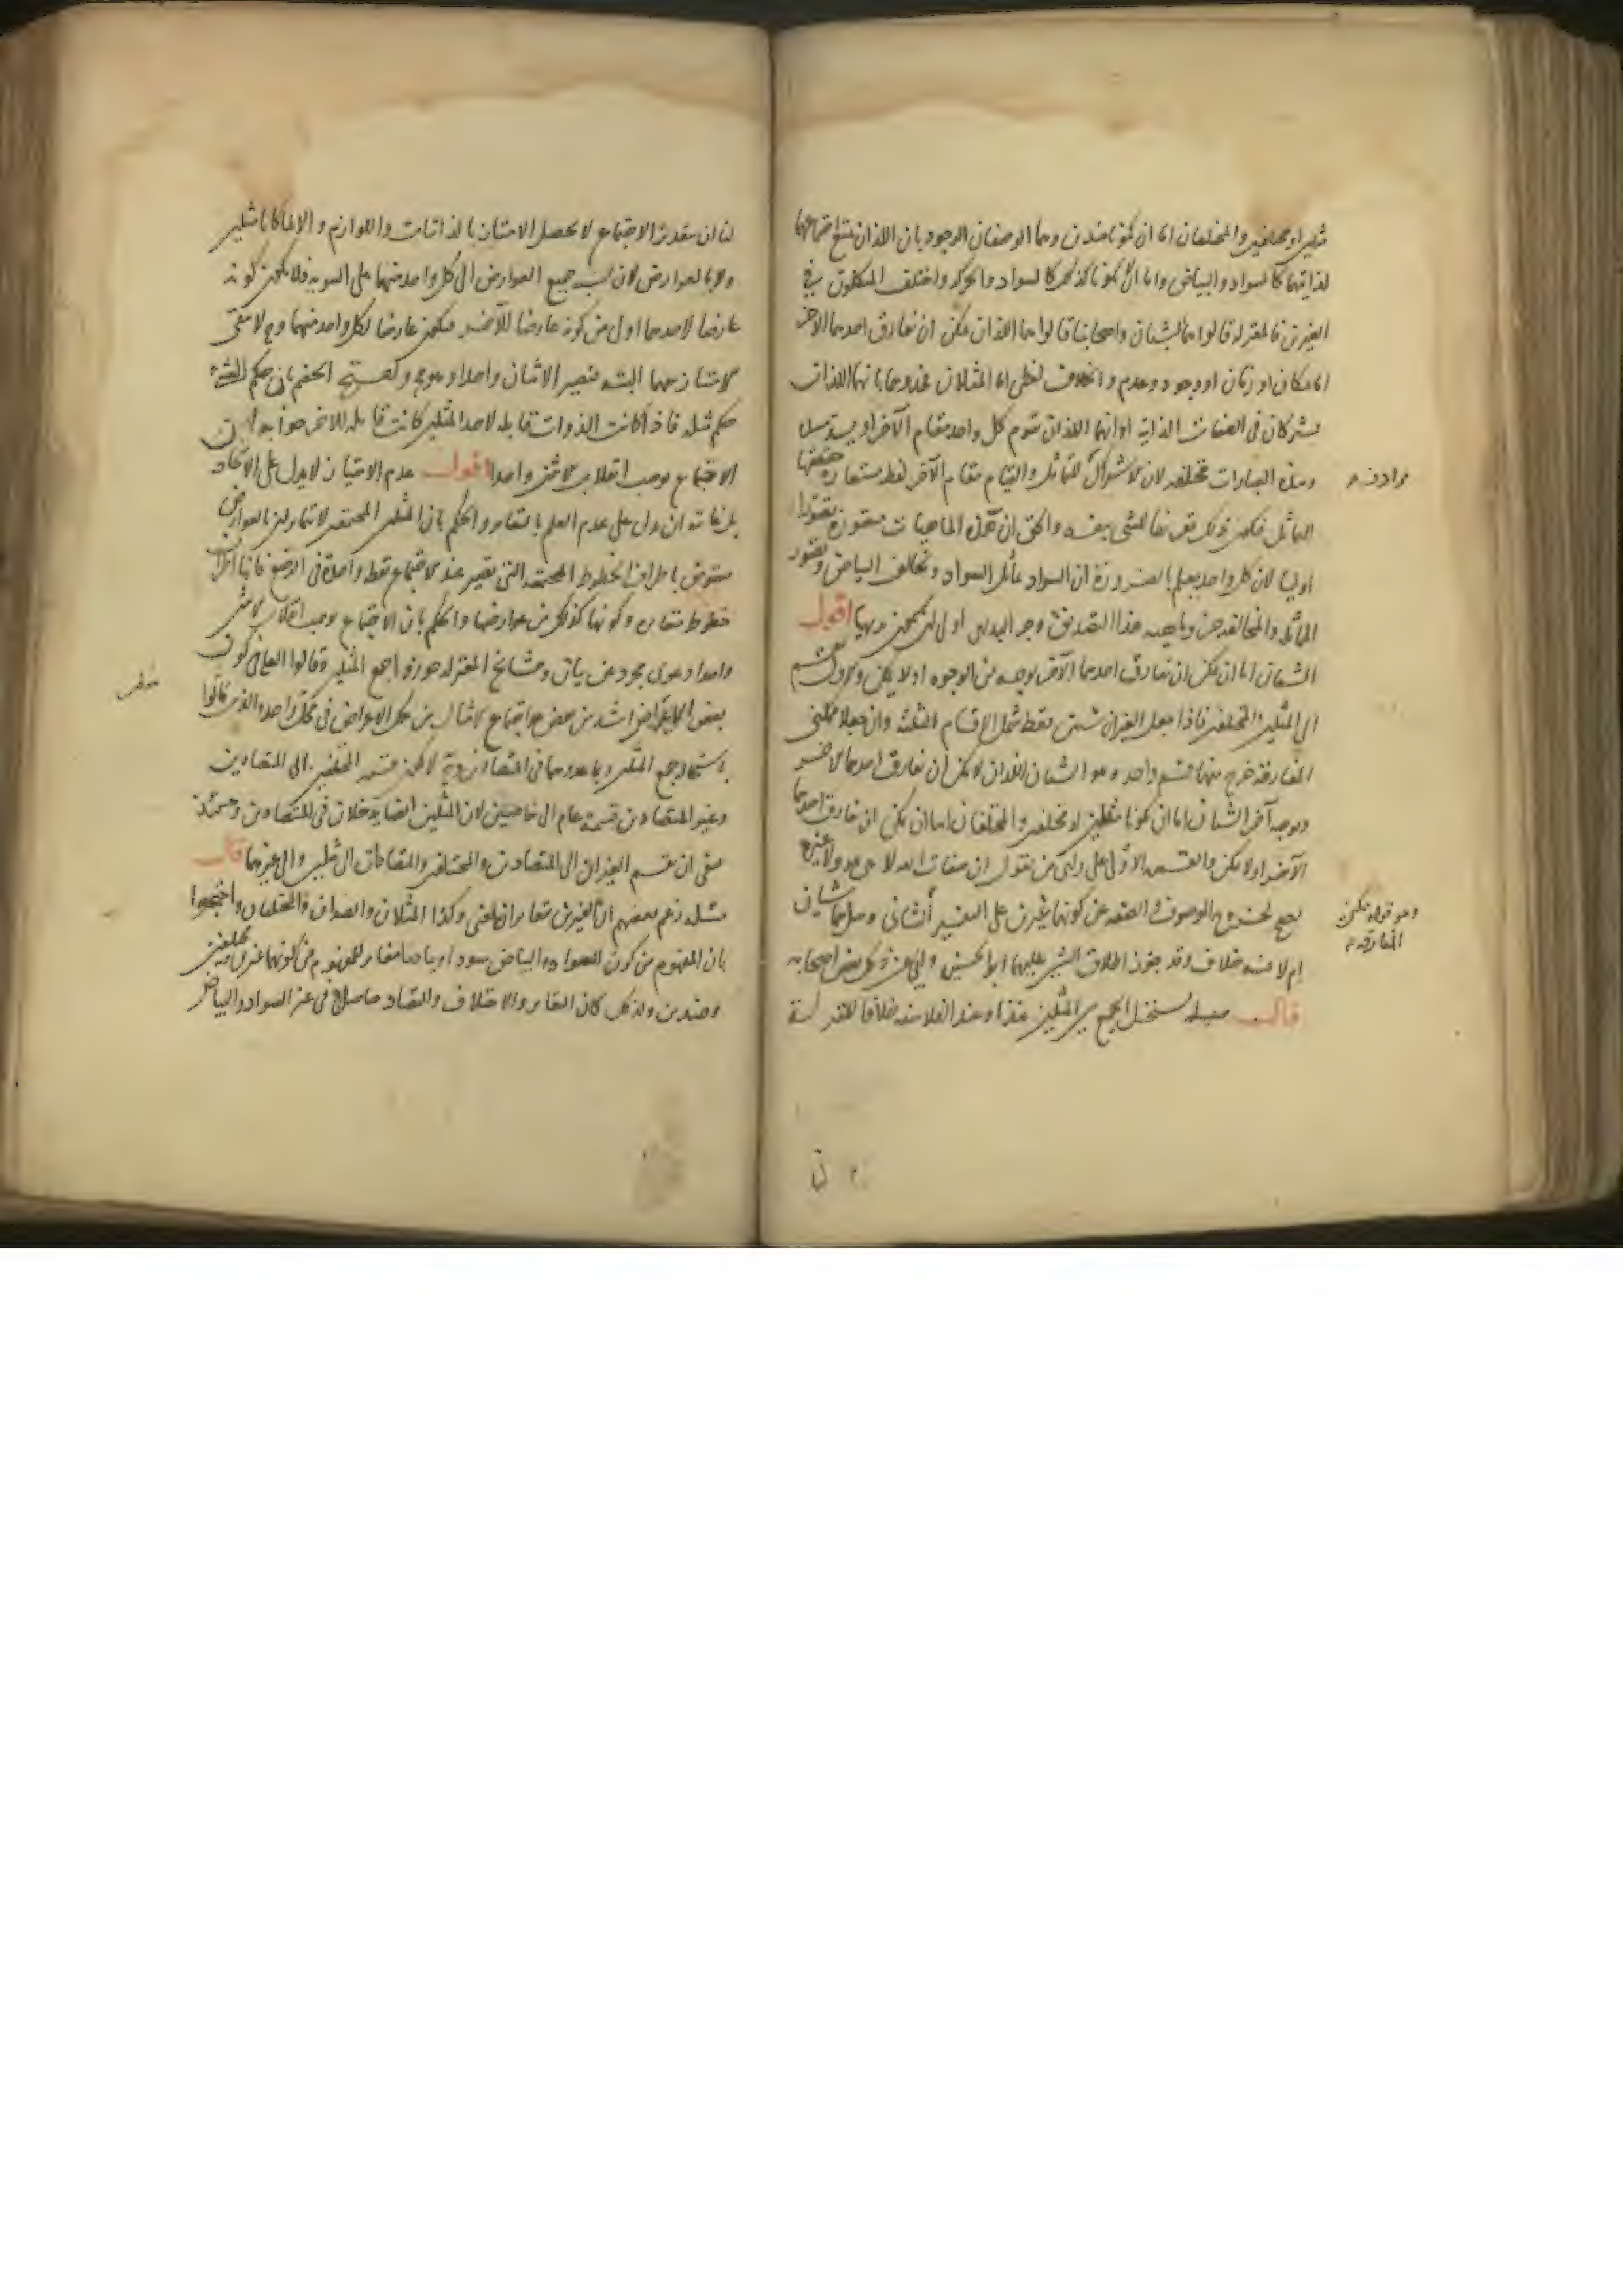 مثلين او مختلفين والمختلفان اما ان يكونا ضدين وهما الوصفان الوجوديان اللذان يمتنع اجتماعهما
لذاتيهما كالسواد والبياض واما ان لا يكونا كذلك كالسواد والحركة واختلف المتكلمون في
الغيرين فالمعتزلة قالوا هما الشيئان واصحابنا قالوا هما اللذان يمكن ان يفارق احدهما الآخر
اما بمكان او زمان او وجود وعدم والخلاف لفظي اما المثلان فحدوهما بانهما اللذان
يشتركان في الصفات الذاتية او انهما اللذان يقوم كل واحد مقام الآخر او يسد مسده
وهذه العبارات مختلفة لان الاشتراك التماثل والقيام مقام الآخر لفظ مستعار حقيقتها
التماثل فيكون ذلك تعريفا للشيء بنفسه والحق ان هذه الماهيات متصورة تصورا
اوليا لان كل واحد يعلم بالضرورة ان السواد يماثل السواد ويخالف البياض وتصور
المماثلة والمخالفة جزء ماهية هذا التصديق وجزء البديهي اولى ان يكون بديهيا اقول
الشيئان اما ان يمكن ان يفارق احدهما الآخر بوجه من الوجوه او لا يمكن والاول ينقسم
الى المثلين والمختلفين فاذا جعل الغيران شيئين فقط شمل الاقسام الثلثة وان جعلا ممكني
المفارقة خرج منها قسم واحد وهو الشيئان اللذان لا يمكن ان يفارق احدهما الآخر
وبوجه آخر الشيئان اما ان يكونا مثلين او مختلفين والمختلفان اما ان يمكن ان يفارق احدهما
الآخر او لا يمكن والقسمة الاولى على رأي من يقول ان صفات الله لا هي هو ولا غيره
يصح لخروج الموصوف والصفة عن كونهما غيرين على التفسير الثاني وهل هما شيئان
ام لا فيه خلاف وقد جوز اطلاق الشيئين عليهما ابو الحسين وابى عن ذلك بعض اصحابه
قال مسألة يستحيل الجمع بين المثلين عندنا وعند الفلاسفة خلافا للمعتزلة
مرادف
وهو قوله يمكن
المفارقة
لنا ان بتقدير الاجتماع لا يحصل الامتياز بالذاتيات واللوازم والا لما كانا مثلين
ولا بالعوارض لان نسبة جميع العوارض الى كل واحد منهما على السوية فلا يكون كونه
عارضا لاحدهما اولى من كونه عارضا للآخر فيكون عارضا لكل واحد منهما وح لا يبقى
الامتياز بينهما البتة فيصير الاثنان واحدا وهو مح واحتج الخصم بان حكم الشيء
حكم مثله فاذا كانت الذوات قابلة لاحد المثلين كانت قابلة للآخر جوابه ان
الاجتماع يوجب انقلاب الاثنين واحدا اقول عدم الامتياز لا يدل على الاتحاد
بل غايته ان يدل على عدم العلم بالتغاير والحكم بان المثلين المجتمعين لا يتمايزان بالعوارض
منقوض باطراف الخطوط المجتمعة التي تصير عند الاجتماع نقطة واحدة في الوضع فانها اطراف
خطوط متغايرة وكونها كذلك من عوارضها والحكم بان الاجتماع يوجب انقلاب الاثنين
واحدا دعوى مجردة عن بيان ومشايخ المعتزلة جوزوا جمع المثلين وقالوا العلة في كون
بعض الاعراض اشد من بعض هو اجتماع الامثال من تلك الاعراض في محل واحد والذين قالوا
باستحالة جمع المثلين وعدوهما في المتضادين لا يكون قسمة المختلفين الى المتضادين
وغير المتضادين قسمة عام الى خاصين لان المثلين ايضا يدخلان في المتضادين وحينئذ
ينبغي ان يقسم الغيران الى المتضادين والمختلفين والمتضادان الى مثلين والى غيرهما قال
مسألة زعم بعضهم ان الغيرين متغايران لمعنى وكذا المثلان والضدان والمختلفان واحتجوا
بان المفهوم من كون السواد والبياض سوادا وبياضا مغاير للمفهوم من كونهما غيرين مختلفين
وضدين ولذلك كان التغاير والاختلاف والتضاد حاصلا في غير السواد والبياض